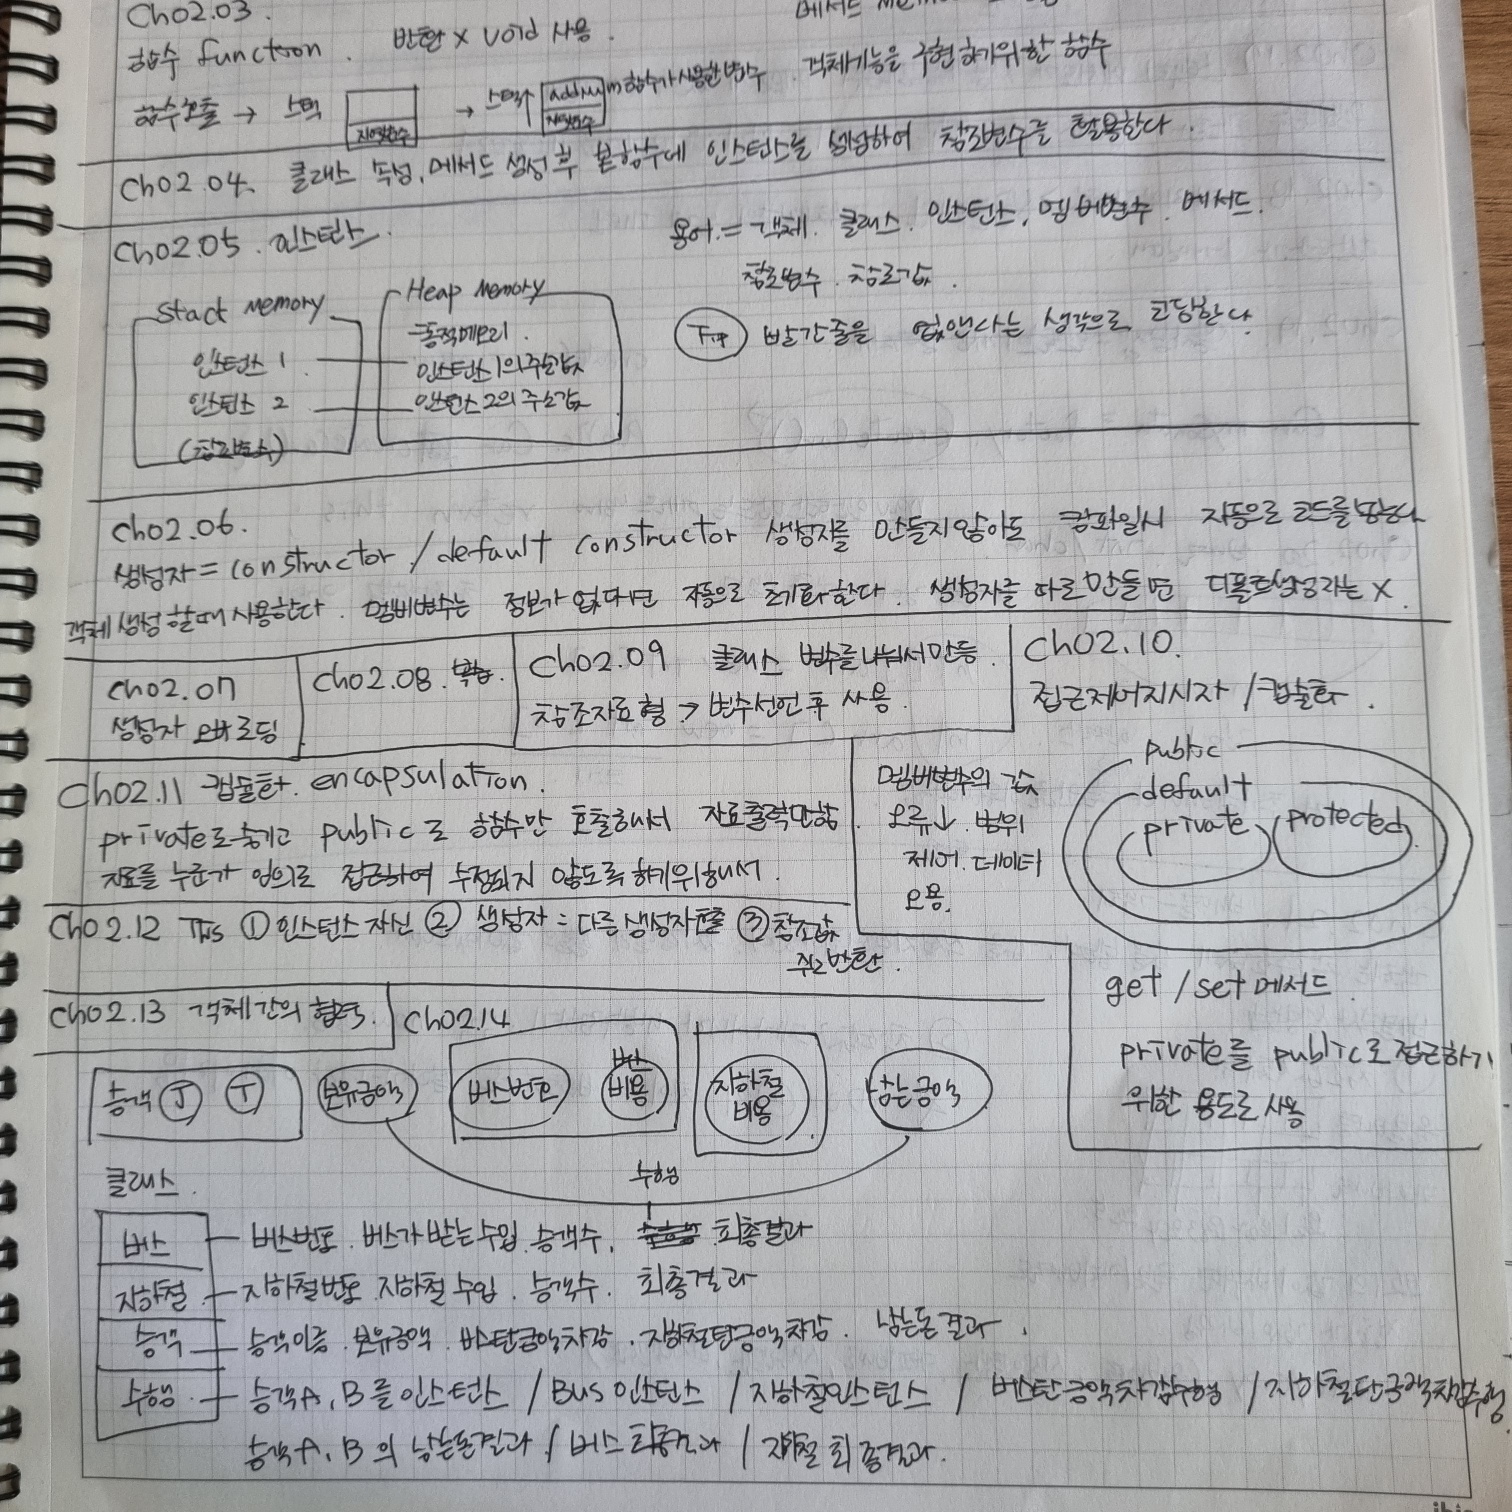 Ch02.03.
함수 function. 반환 x void 사용.
메서드
함수호출 → 스택 지역변수 → 스택 addnum함수가 사용한 변수 지역변수 객체기능을 구현하기위한 함수
Ch02.04. 클래스 속성, 메서드 생성 후 본함수에 인스턴스를 생성하여 참조변수를 활용한다.
Ch02.05. 인스턴스.
용어 = 객체. 클래스. 인스턴스, 멤버변수. 메서드.
참조변수. 참조값.
Tip 빨간줄을 없앤다는 생각으로 코딩한다
Stact memory
인스턴스 1
인스턴스 2
(참조변수)
Heap memory
동적메모리.
인스턴스1의 주소값
인스턴스2의 주소값
Ch02.06.
생성자 = constructor / default constructor 생성자를 만들지않아도 컴파일시 자동으로 코드를
객체생성할때 사용한다. 멤버변수는 정보가 없다면 자동으로 초기화한다. 생성자를 따로 만들면 디폴트생성자는 X.
Ch02.07
생성자 오버로딩
Ch02.08. 복습.
Ch02.09 클래스 변수를 나눠서만듬.
참조자료형 → 변수선언 후 사용.
Ch02.10.
접근제어지시자 / 캡슐화.
public
default
private
protected
멤버변수의 값
오류↓. 범위
제어. 데이터
오용.
get / set 메서드.
private를 public로 접근하기
위한 용도로 사용
Ch02.11 캡슐화. encapsulation.
private로 숨기고 public로 함수만 호출해서 자료출력만함.
자료를 누군가 임의로 접근하여 수정되지 않도록 하기위해서.
Ch02.12 This ① 인스턴스 자신 ② 생성자 = 다른생성자호출 ③ 참조값
주소반환.
Ch02.13 객체간의 협력.
Ch02.14
승객 J T 보유금액 버스번호 버스비용 지하철비용 남는금액
수행
클래스.
버스 - 버스번호. 버스가 받는수입. 승객수. 최종결과
지하철 - 지하철번호. 지하철수입. 승객수. 최종결과
승객 - 승객이름. 보유금액. 버스탄금액차감. 지하철탄금액차감. 남는돈결과.
수행 - 승객A, B를 인스턴스 / Bus 인스턴스 / 지하철인스턴스 / 버스탄금액차감수행 / 지하철탄금액차감수행
승객A, B의 남는돈결과 / 버스 최종결과 / 지하철 최종결과.